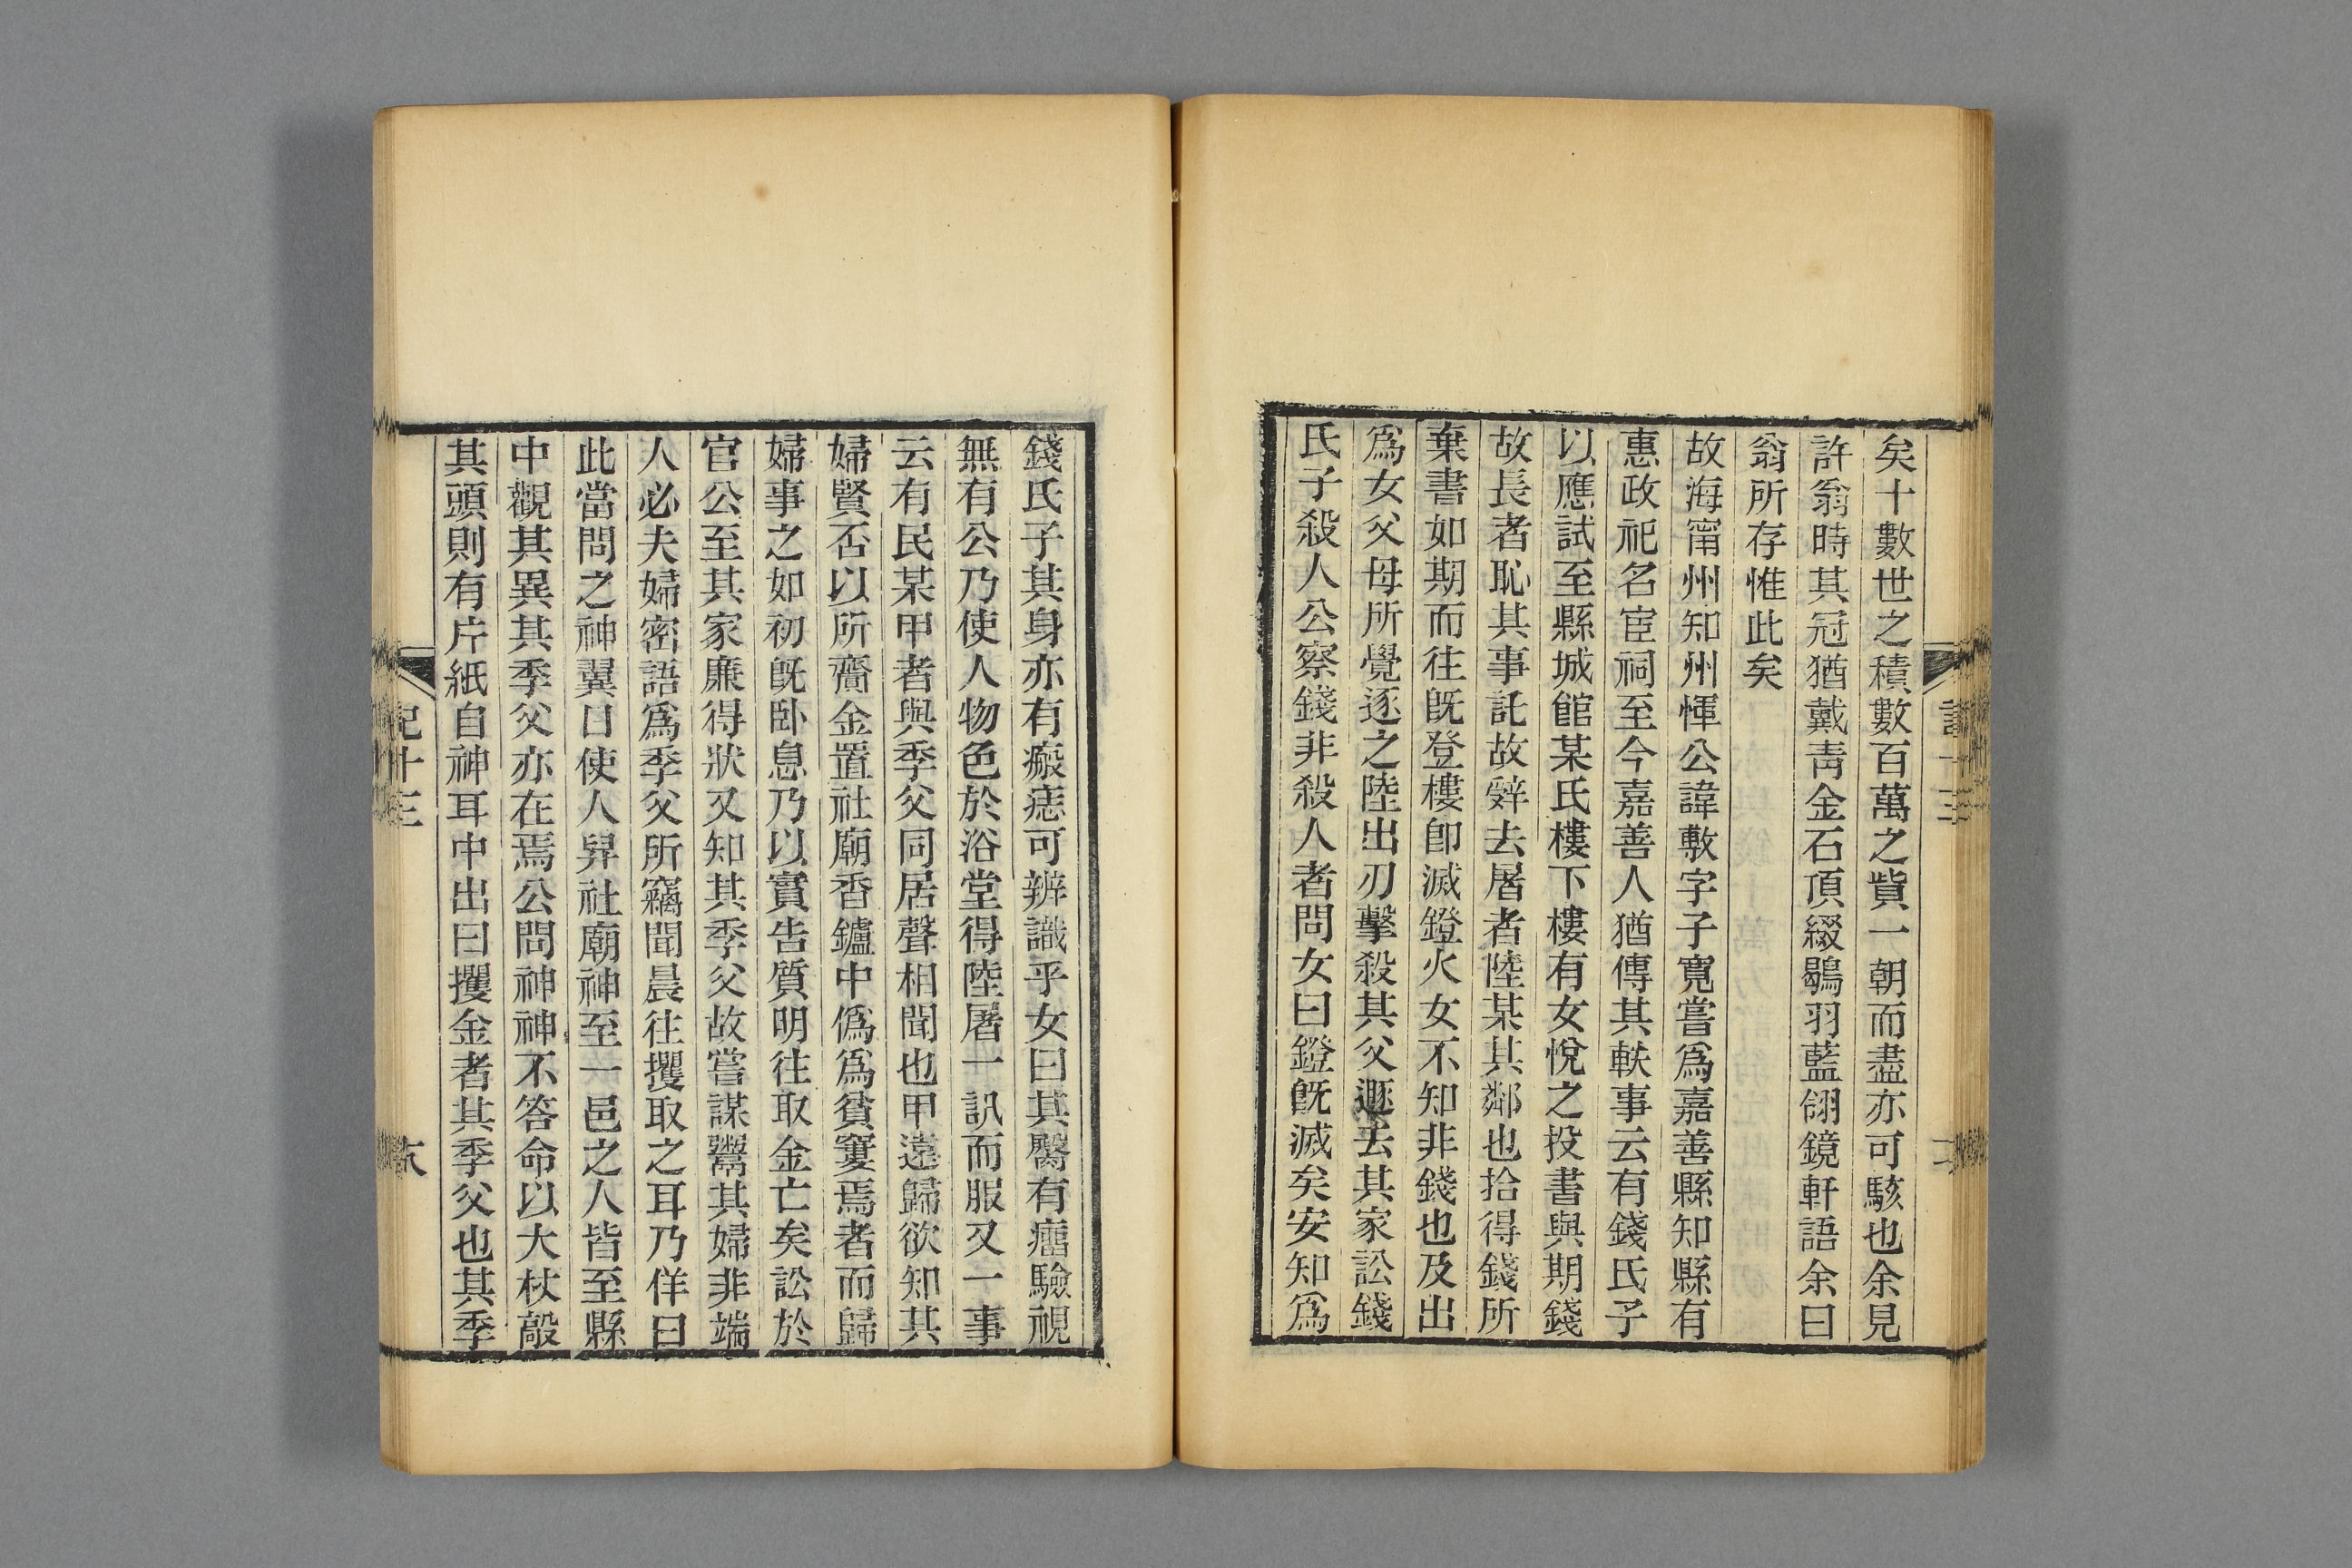 矣十數世之積數百萬之貲一朝而盡亦可駭也余見
許翁時其冠猶戴青金石頂綴鶡羽藍翎鏡軒語余曰
翁所存惟此矣
故海甯州知州惲公諱敷字子寬嘗爲嘉善縣知縣有
惠政祀名宦祠至今嘉善人猶傳其軼事云有錢氏子
以應試至縣城館某氏樓下樓有女悅之投書與期錢
故長者恥其事託故辤去屠者陸某其鄰也拾得錢所
棄書如期而往旣登樓卽滅鐙火女不知非錢也及出
爲女父母所覺逐之陸出刃擊殺其父遯去其家訟錢
氏子殺人公察錢非殺人者問女曰鐙旣滅矣安知爲
錢氏子其身亦有瘢痣可辨識乎女曰其臀有瘤驗視
無有公乃使人物色於浴堂得陸屠一訊而服又一事
云有民某甲者與季父同居聲相聞也甲遠歸欲知其
婦賢否以所齎金置社廟香鑪中僞爲貧窶焉者而歸
婦事之如初旣臥息乃以實告質明往取金亡矣訟於
官公至其家廉得狀又知其季父故嘗謀鬻其婦非端
人必夫婦密語爲季父所竊聞晨往攫取之耳乃佯曰
此當問之神翼日使人舁社廟神至一邑之人皆至縣
中觀其異其季父亦在焉公問神神不答命以大杖敲
其頭則有片紙自神耳中出曰攫金者其季父也其季
記十三